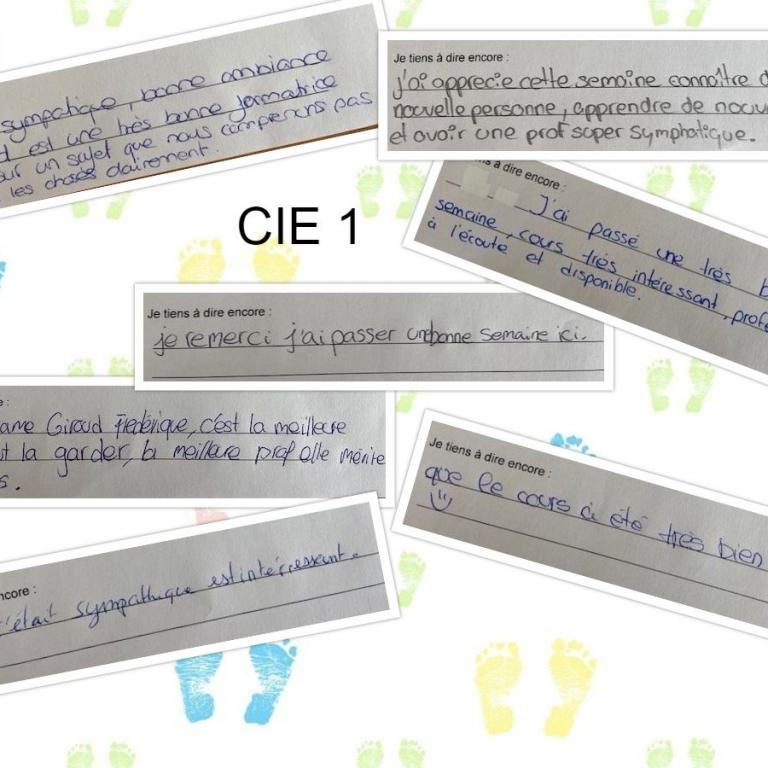 sympatique, bonne ambiance
est une très bonne formatrice
sur un sujet que nous comprenons pas
les choses clairement.
Je tiens à dire encore :
j'ai apprecie cette semaine connaître d
nouvelle personne, apprendre de nouv
et avoir une prof super symphatique.
s à dire encore :
J'ai passé une très b
semaine, cours très intéressant, profe
à l'écoute et disponible.
CIE 1
Je tiens à dire encore :
je remerci j'ai passer une bonne semaine ici.
e :
ame Giroud Frederique, c'est la meilleure
t la garder, la meilleure prof elle mérite
s.
Je tiens à dire encore :
que le cours à été très bien
ncore :
c'était sympathique est intérressant.